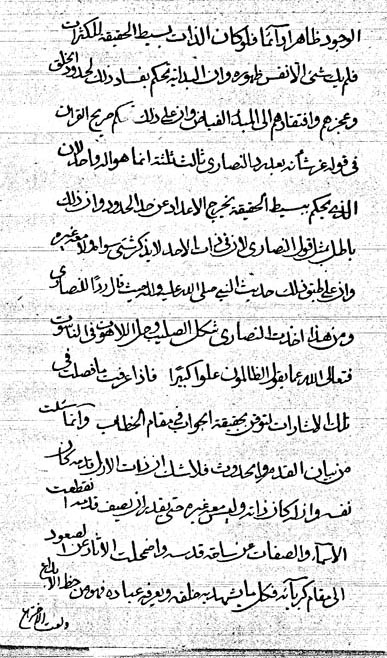 الوجود ظاهراً دآئما فلو كان الذات بسيط الحقيقة للكثرات
فلم يك شئ الا نفس ظهوره وان البداية تحكم بفساد ذلك لحدود الخلق
وعجزهم وافتقارهم الى المبدء الفياض وان على ذلك حكم صريح القران
في قوله عز شأنه بعد رد النصارى ثالث ثلثة انما هو اله واحد لان
الذي يحكم ببسيط الحقيقة يخرج الاعداد عن حد الحدود وان ذلك
باطل بمثل قول النصارى لان في ذات الاحد لا يذكر شئ سواه ولا معه غيره
وان على طبق ذلك حديث النبي صلى الله عليه واله حيث قال ردا للنصارى
ومن هذا اخذت النصارى شكل الصليب وحل اللاهوت في الناسوت
فتعالى الله عما يقول الظالمون علوا كبيرا فاذا عرفت ما فصلت في
تلك الاشارات لتوقن بحقيقة الجواب في مقام الخطاب وانما سئلت
من بيان القدم والحدوث فلا شك ان ذات الازل قدمه كان
نفسه وان كان ذاته وليس معه غيره حتى يقدر ان يصف قدمه انقطعت
الاسماء والصفات من ساحة قدسه واضمحلت الاثار عن الصعود
الى مقام كبريآئه فكل ما يشهد به خلقه ويعرفه عباده فهو من حظ الابداع
ونعت الاختراع